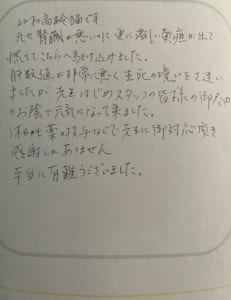 22才の高齢猫です
元々腎臓が悪いのに更に激しい黄疸が出て
慌ててこちらへ駆け込みました。
肝数値が非常に悪く生死の境いをさ迷い
ましたが 先生はじめスタッフの皆様の御尽力
のお陰で元気になって来ました。
休日も薬の投与などで先生に御対応頂き
感謝しかありません
本当に有難うございました。